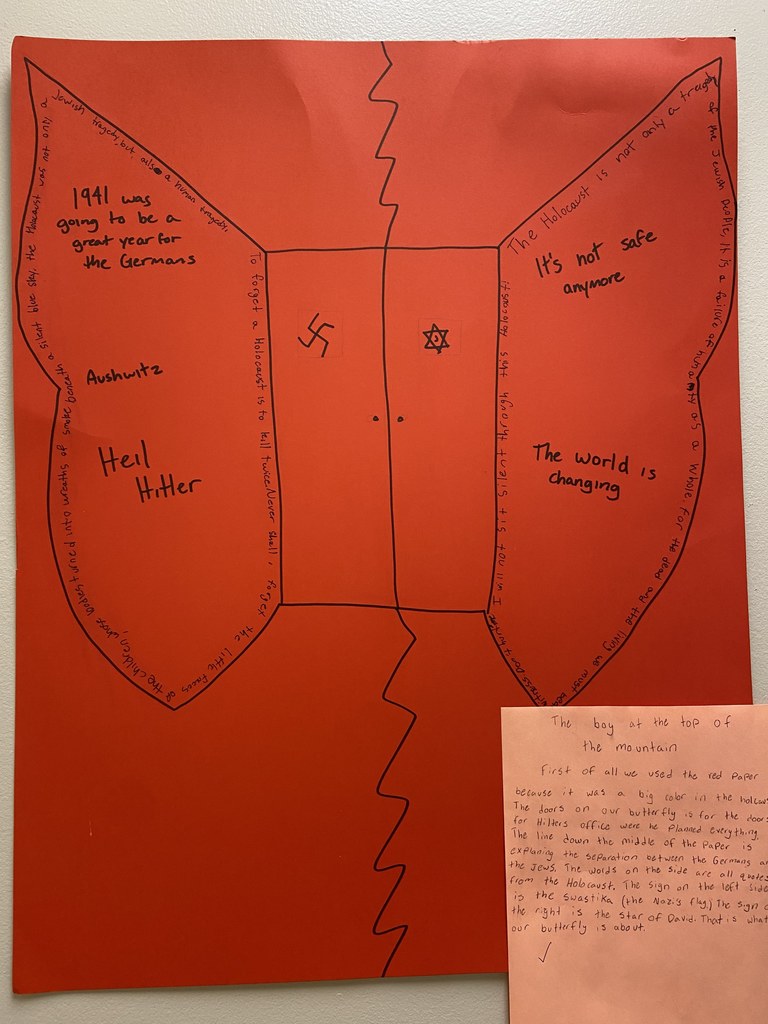 Jewish tragedy, but also a human tragedy.
1941 was
going to be a
great year for
the Germans
Aushwitz
Heil
Hitler
of the children, whose bodies turned into wreaths of smoke beneath a silent blue sky. the Holocaust was not only a
To forget a Holocaust is to kill twice. Never shall, forget the little faces
The Holocaust is not only a tragedy of the Jewish people, it is a failure of humanity as a whole. For the dead and the living we must bear
It's not safe
anymore
The world is
changing
I will tell it this
through this Holocaust
The boy at the top of
the mountain
First of all we used the red paper
because it was a big color in the
The doors on our butterfly is for the
for Hilters office were he planned everything.
The line down the middle of the Paper is
explaning the separation between the Germans
the Jews. The words on the side are all quotes
from the Holocaust. The sign on the left side
is the swastika (the Nazi's flag.) The sign
the right is the star of David. That is what
our butterfly is about.